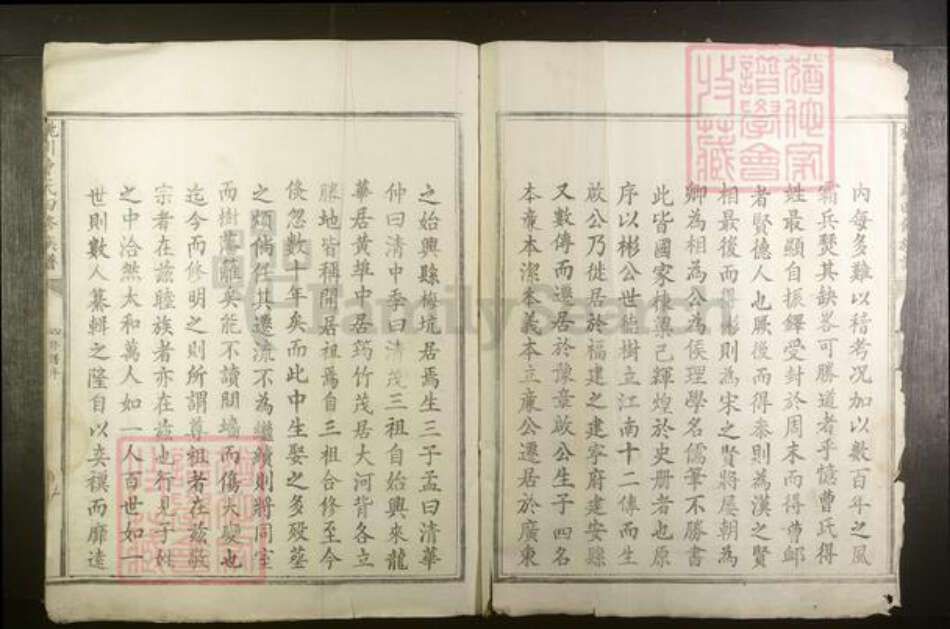 內每多難以稽考况加以數百年之風
霜兵燹其缺畧可勝道者乎憶曹氏得
姓最顯自振鐸受封於周末而得曹卹
者賢德人也厥後而得參則為漢之賢
相最後而得彬則為宋之賢將屢朝為
卿為相為公為侯理學名儒筆不勝書
此皆國家棟樑已輝煌於史册者也原
序以彬公世德樹立江南十二傳而生
啟公乃徙居於福建之建寧府建安縣
又數傳而遷居於豫章啟公生子四名
本童本潔本義本立童公遷居於廣東
之始興縣梅坑居焉生三子孟曰清華
仲曰清中季曰清茂三祖自始興來龍
華居黃華中居筠竹茂居大河背各立
勝地皆稱開居祖焉自三祖合修至今
倏忽數十年矣而此中生娶之多歿塟
之煩倘任其遷流不為繼續則將同室
而樹籓籬矣能不讀鬩墻而傷失燬也
迄今而修明之則所謂尊祖者在茲敬
宗者在茲睦族者亦在茲也行見子姓
之中洽然太和萬人如一人百世如一
世則數人纂輯之隆自以奕禩而靡遠
氏四修族譜
四修譜序
FamilySearch
譜學會
收藏